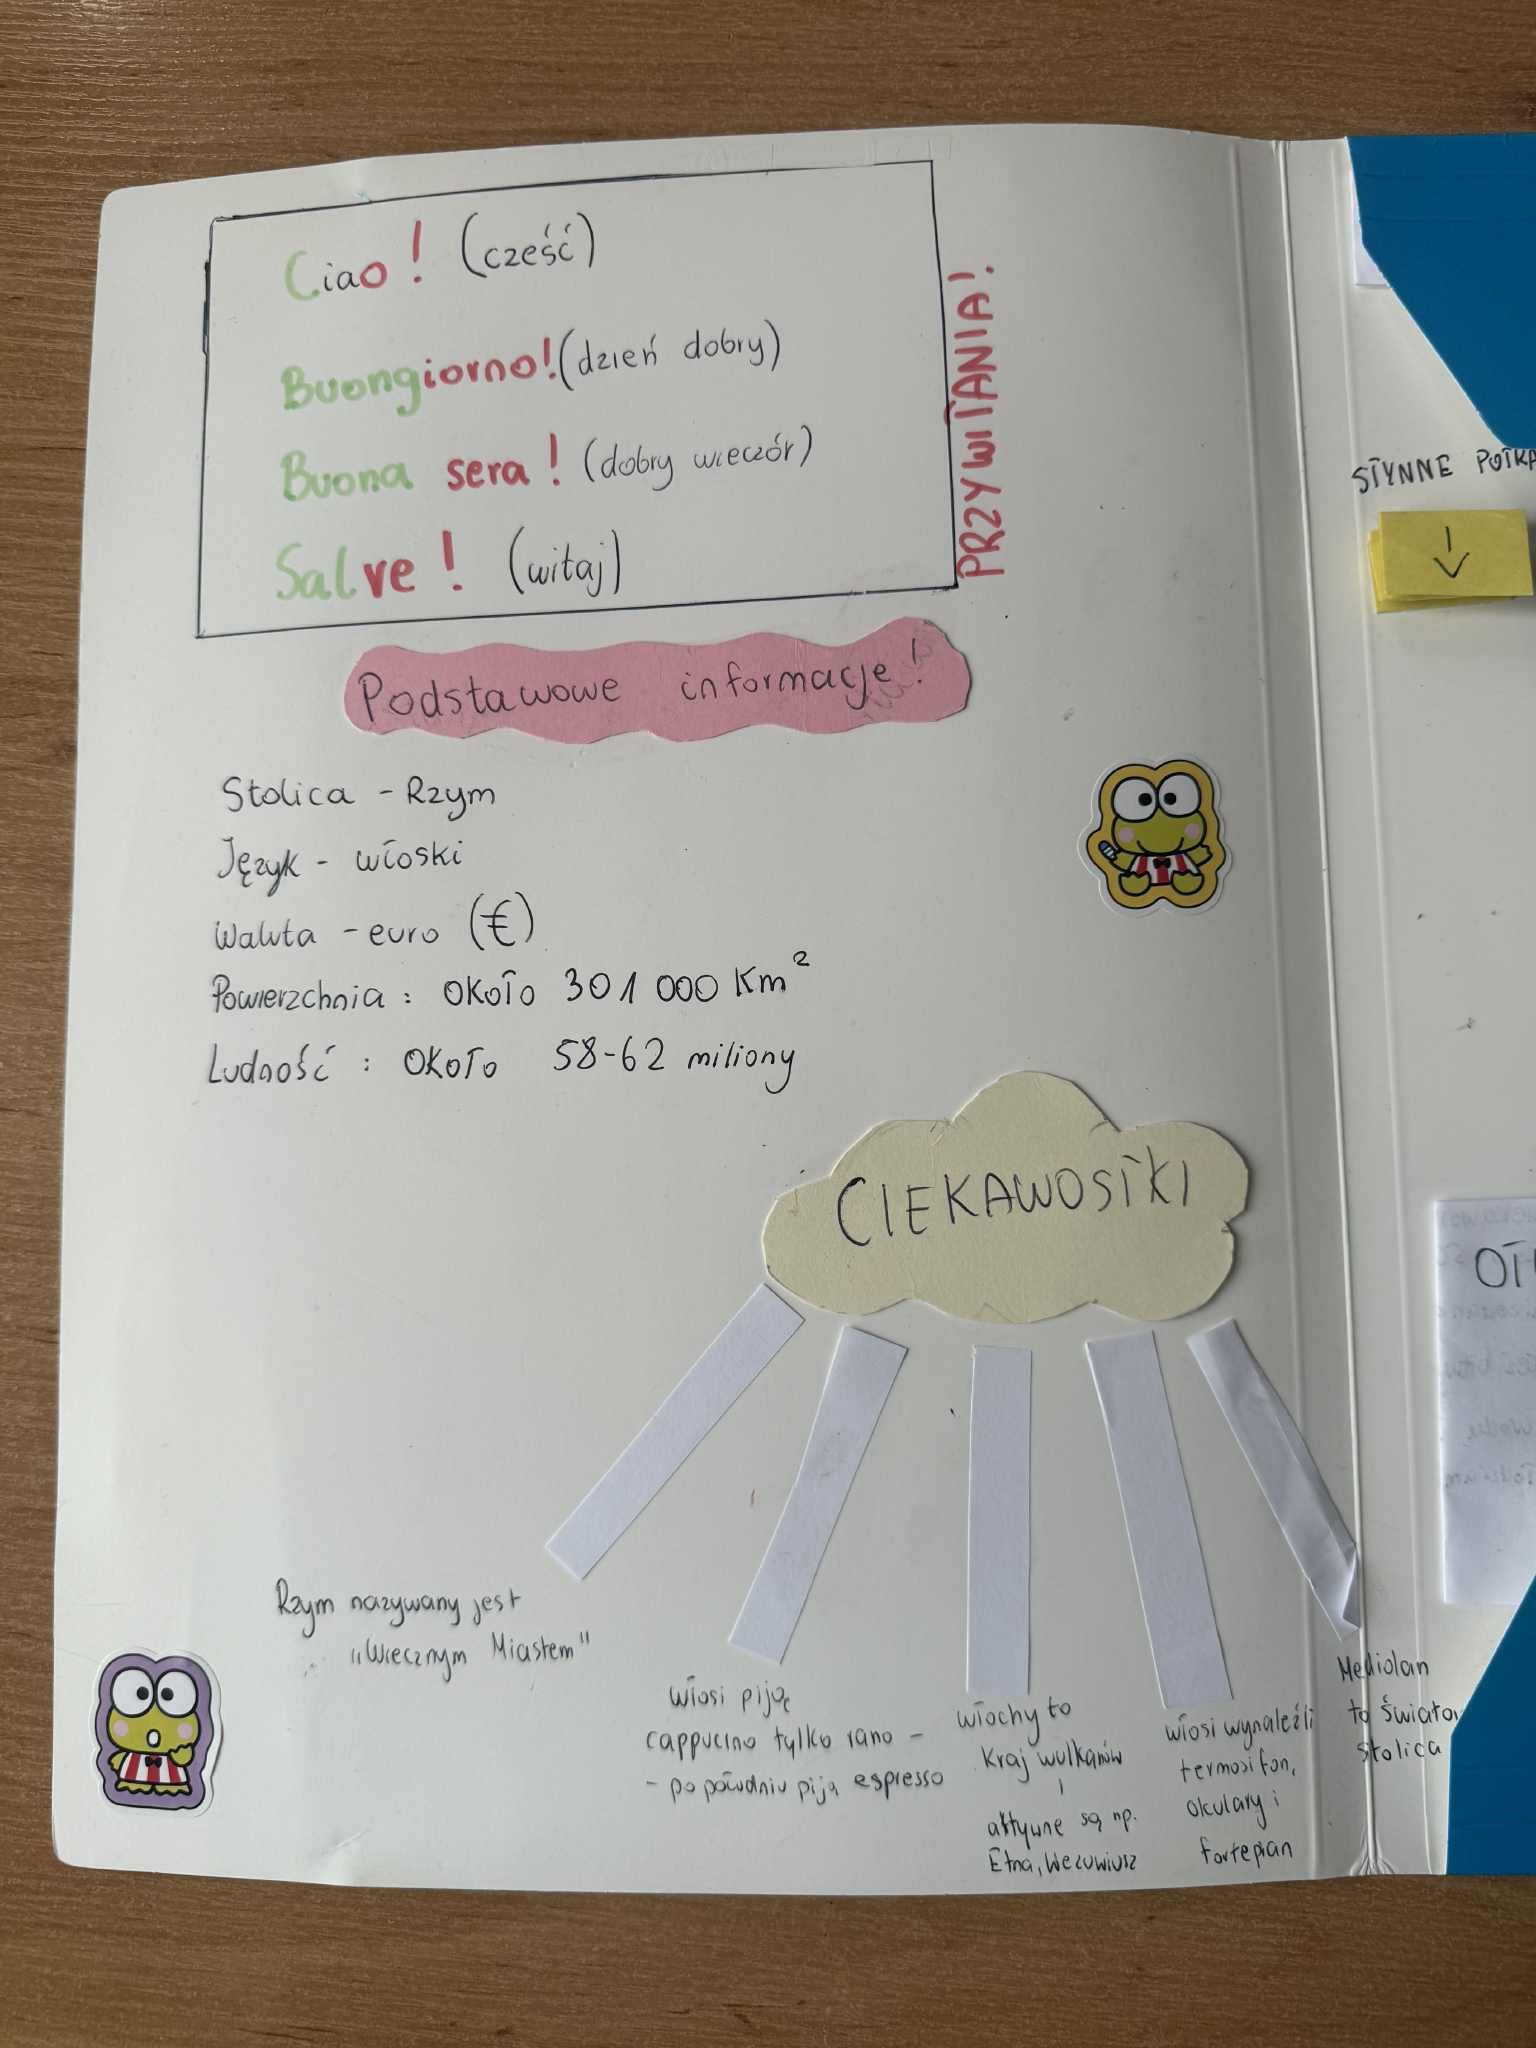 Ciao! (cześć)
Buongiorno! (dzień dobry)
Buona sera! (dobry wieczór)
Salve! (witaj)
PRZYWITANIA!
Podstawowe informacje!
Stolica - Rzym
Język - włoski
Waluta - euro (€)
Powierzchnia: około 301 000 km²
Ludność: około 58-62 miliony
CIEKAWOSTKI
Rzym nazywany jest
"Wiecznym Miastem"
Włosi piją
cappucino tylko rano -
- po południu piją espresso
Włochy to
kraj wulkanów
i
aktywne są np.
Etna, Wezuwiusz
Włosi wynaleźli
termosifon,
okulary i
fortepian
Mediolan
to
stolica
SŁYNNE
↓